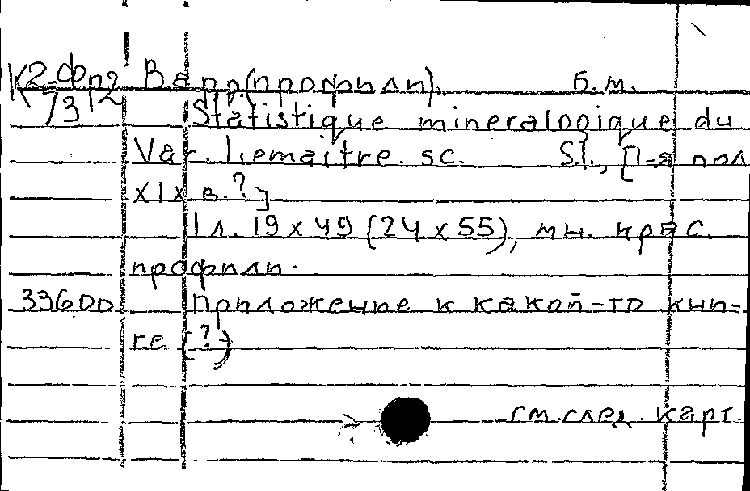 К2-Фр2 Вар (профили). б.м.
7/3 Statistique mineralogique du
Var. Lemaitre sc. S.l., [1-я пол.
XIX в.?]
1 л. 19 x 49 (24 x 55), мн. крас.
профили.
33600 Приложение к какой-то кни-
ге (?)
см. след. карт.